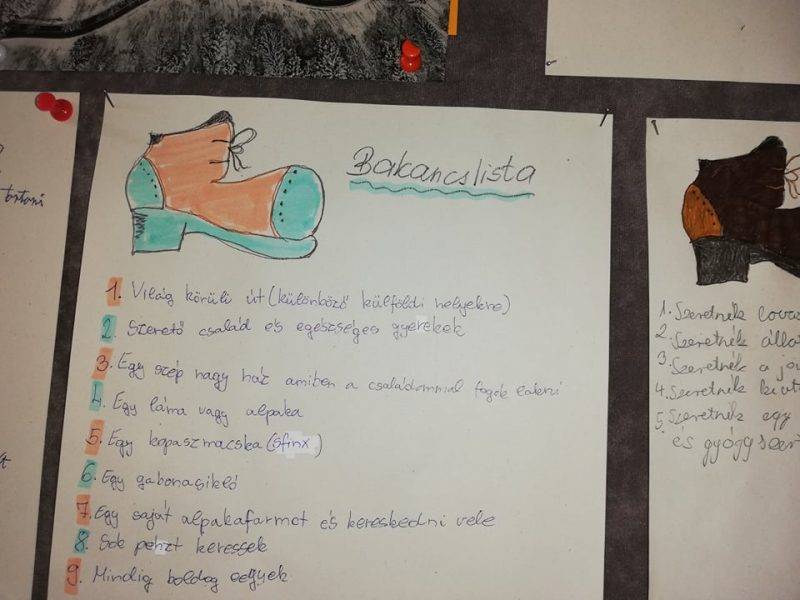 tartani
Bakancslista
1. Világ körüli út (különböző külföldi helyekre)
2. Szerető család és egészséges gyerekek
3. Egy szép nagy ház amiben a családommal fogok lakni
4. Egy láma vagy alpaka
5. Egy kopaszmacska (sfinx)
6. Egy gabonasikló
7. Egy saját alpakafarmot és kereskedni vele
8. Sok pénzt keressek
9. Mindig boldog legyek
1. Szeretnék
2. Szeretnék
3. Szeretnék a
4. Szeretnék
5. Szeretnék egy
és